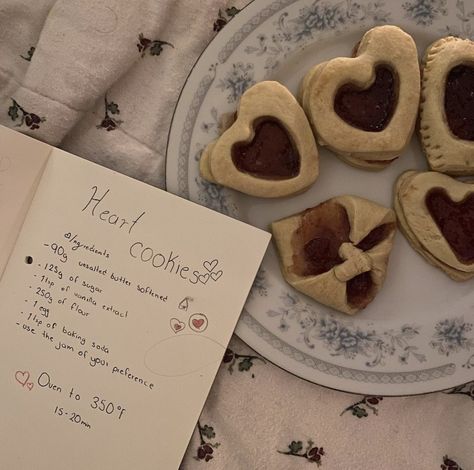 Heart
cookies
Ingredients
- 90g unsalted butter softened
- 125g of sugar
- 1tsp of vanilla extract
- 250g of flour
- 1 egg
- 1tsp of baking soda
- use the jam of your preference
Oven to 350°F
15-20min